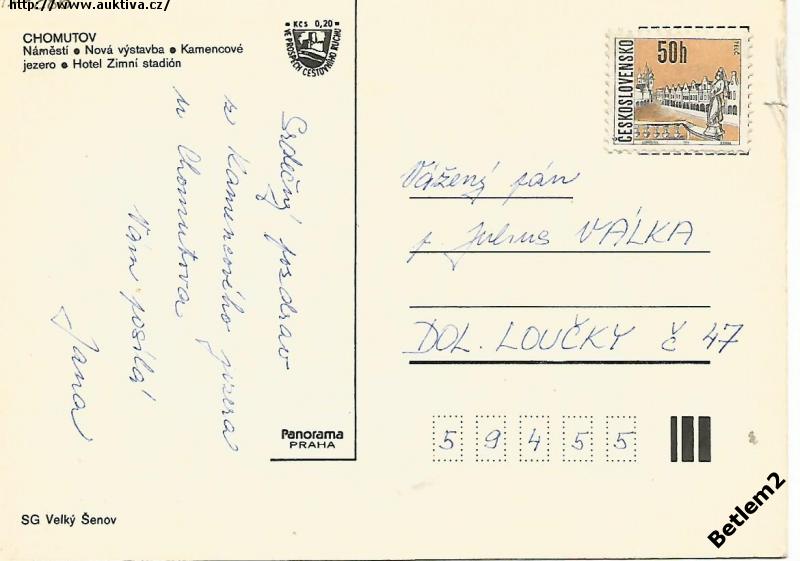 http://www.auktiva.cz/
CHOMUTOV
Náměstí ● Nová výstavba ● Kamencové
jezero ● Hotel Zimní stadión
Kčs 0,20
VE PROSPĚCH CESTOVNÍHO RUCHU
ČESKOSLOVENSKO
50h
TELČ
Srdečný pozdrav
z Kamencového jezera
u Chomutova
Vám posílá
Jana
Vážený pán
p. Julius VÁLKA
DOL. LOUČKY č 47
59455
Panorama
PRAHA
SG Velký Šenov
Betlem2